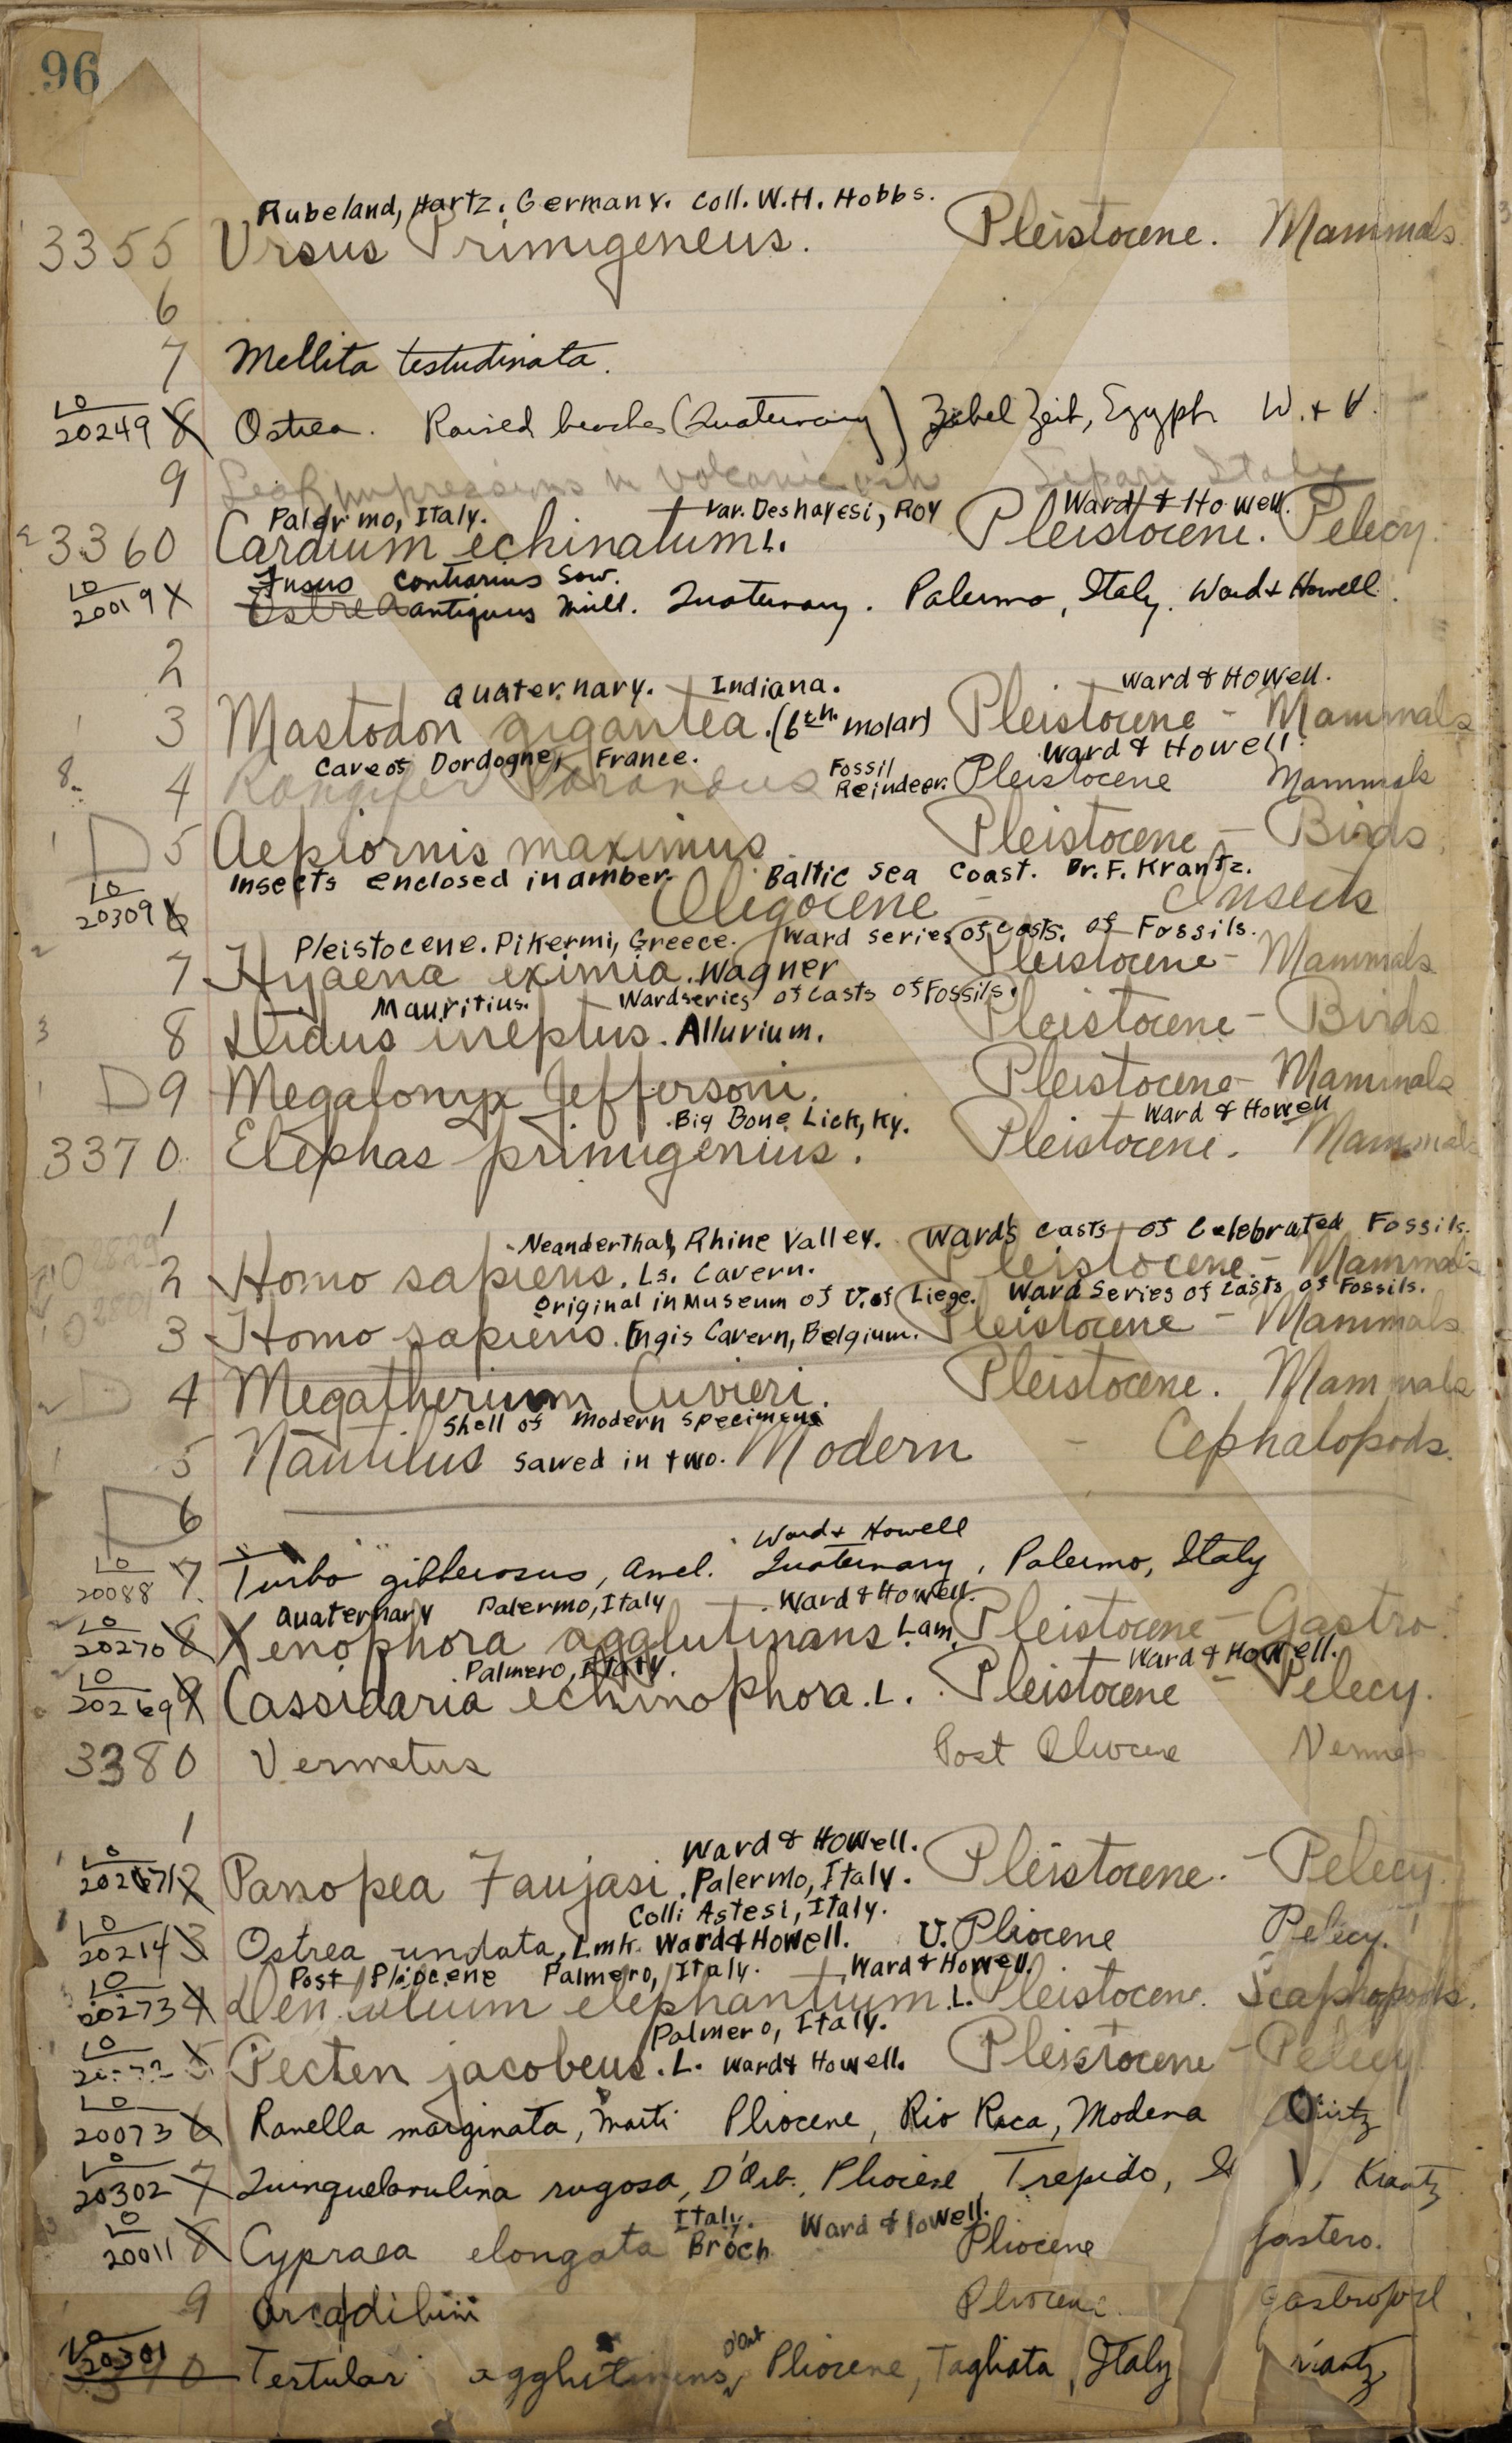 96
Rubeland, Hartz. Germany. Coll. W.H. Hobbs.
3355 Ursus Primigeneus. Pleistocene. Mammals
6
7 Mellita testudinata.
LO
20249 8 Ostrea. Raised beaches (Quaternary) Zebel Zeit, Egypt W. + H.
9 Leaf impressions in volcanic ash Lipari Italy
Palermo, Italy. var. Deshayesi, Roy Ward & Howell.
3360 Cardium echinatum L. Pleistocene. Pelecy.
Fusus contrarius Sow.
LO
20019 Ostrea antiquus Müll. Quaternary. Palermo, Italy. Ward & Howell.
2
Quaternary. Indiana. Ward & Howell.
3 Mastodon gigantea. (6th. molar) Pleistocene - Mammals
Cave of Dordogne, France. Ward & Howell
8. 4 Rangifer Tarandus Fossil Reindeer. Pleistocene Mammals
D 5 Aepiornis maximus Pleistocene - Birds
Insects enclosed in amber. Baltic Sea Coast. Dr. F. Krantz.
LO
20309 6 Oligocene - Insects
Pleistocene. Pikermi, Greece. Ward series of casts of Fossils.
7 Hyaena eximia. Wagner Pleistocene - Mammals
Mauritius. Ward series of casts of Fossils.
3 8 Didus ineptus. Alluvium. Pleistocene - Birds
D 9 Megalonyx Jeffersoni. Pleistocene - Mammals
Big Bone Lick, Ky. Ward & Howell
3370 Elephas primigenius. Pleistocene. Mammals
1
Neanderthal, Rhine Valley. Ward's casts of Celebrated Fossils.
2 Homo sapiens. Ls. Cavern. Pleistocene - Mammals
Original in Museum of U. of Liege. Ward Series of Casts of Fossils.
3 Homo sapiens. Engis Cavern, Belgium. Pleistocene - Mammals
D 4 Megatherium Cuvieri. Pleistocene. Mammals
Shell of modern specimens
5 Nautilus sawed in two. Modern - Cephalopods.
D 6
Ward & Howell
LO
20088 7 Turbo gibberosus, Quaternary, Palermo, Italy
Quaternary Palermo, Italy Ward & Howell.
LO
20270 8 Xenophora agglutinans Lam. Pleistocene - Gastro.
Palmero, Italy. Ward & Howell.
LO
20269 9 Cassidaria echinophora. L. Pleistocene - Pelecy.
3380 Vermetus Post Pliocene Vermes
1
Ward & Howell.
LO
20271 2 Panopea Faujasi. Palermo, Italy. Pleistocene. - Pelecy.
Colli Astesi, Italy.
LO
20214 3 Ostrea undata, Lmk. Ward & Howell. U. Pliocene Pelecy.
Post Pliocene Palmero, Italy. Ward & Howell.
LO
20273 4 Dentalium elephantium. L. Pleistocene. Scaphopods.
Palmero, Italy.
LO
5 Pecten jacobeus. L. Ward & Howell. Pleistocene - Pelecy
LO
20073 6 Ranella marginata, Marti Pliocene, Rio Roca, Modena
LO
20302 7 Quinqueloculina rugosa, D'Orb. Pliocene Trepido, Krantz
Italy. Ward & Howell.
LO
20011 8 Cypraea elongata Broch. Pliocene Gastero.
9 Pliocene. Gastropod
LO
20301
3390 Textular agglutinans D'Orb Pliocene, Tagliata, Italy